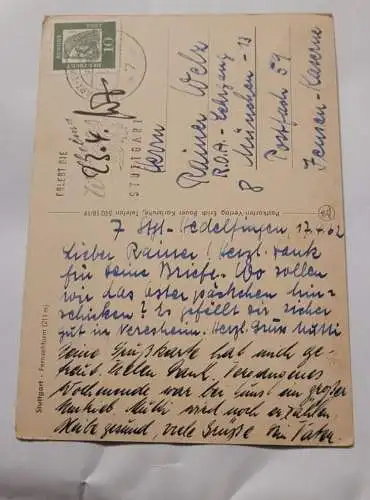 DEUTSCHE
BUNDESPOST
10
ERLEBT DIE
STUTTGART
23.4.
Herrn
Rainer Welz
R.O.A.- Lehrgang
8 München - 13
Postfach 59
Jensen-Kaserne
Postkarten-Verlag Erich Bauer Karlsruhe, Telefon
Stuttgart - Fernsehturm (211 m)
7 Stgt.-Hedelfingen, 17.4.62
Lieber Rainer! Herzl. Dank
für deine Briefe. Wo sollen
wir das Osterpäckchen hin-
schicken? Es gefällt dir sicher
gut in Veresheim. Herzl. Grüße Mutti
Deine Grußkarte hat mich ge-
freut. Vielen Dank. Vergangenes
Wochenende war bei uns ein großer
Betrieb. Mutti wird noch erzählen.
Bleibe gesund, viele Grüße Dein Vater.